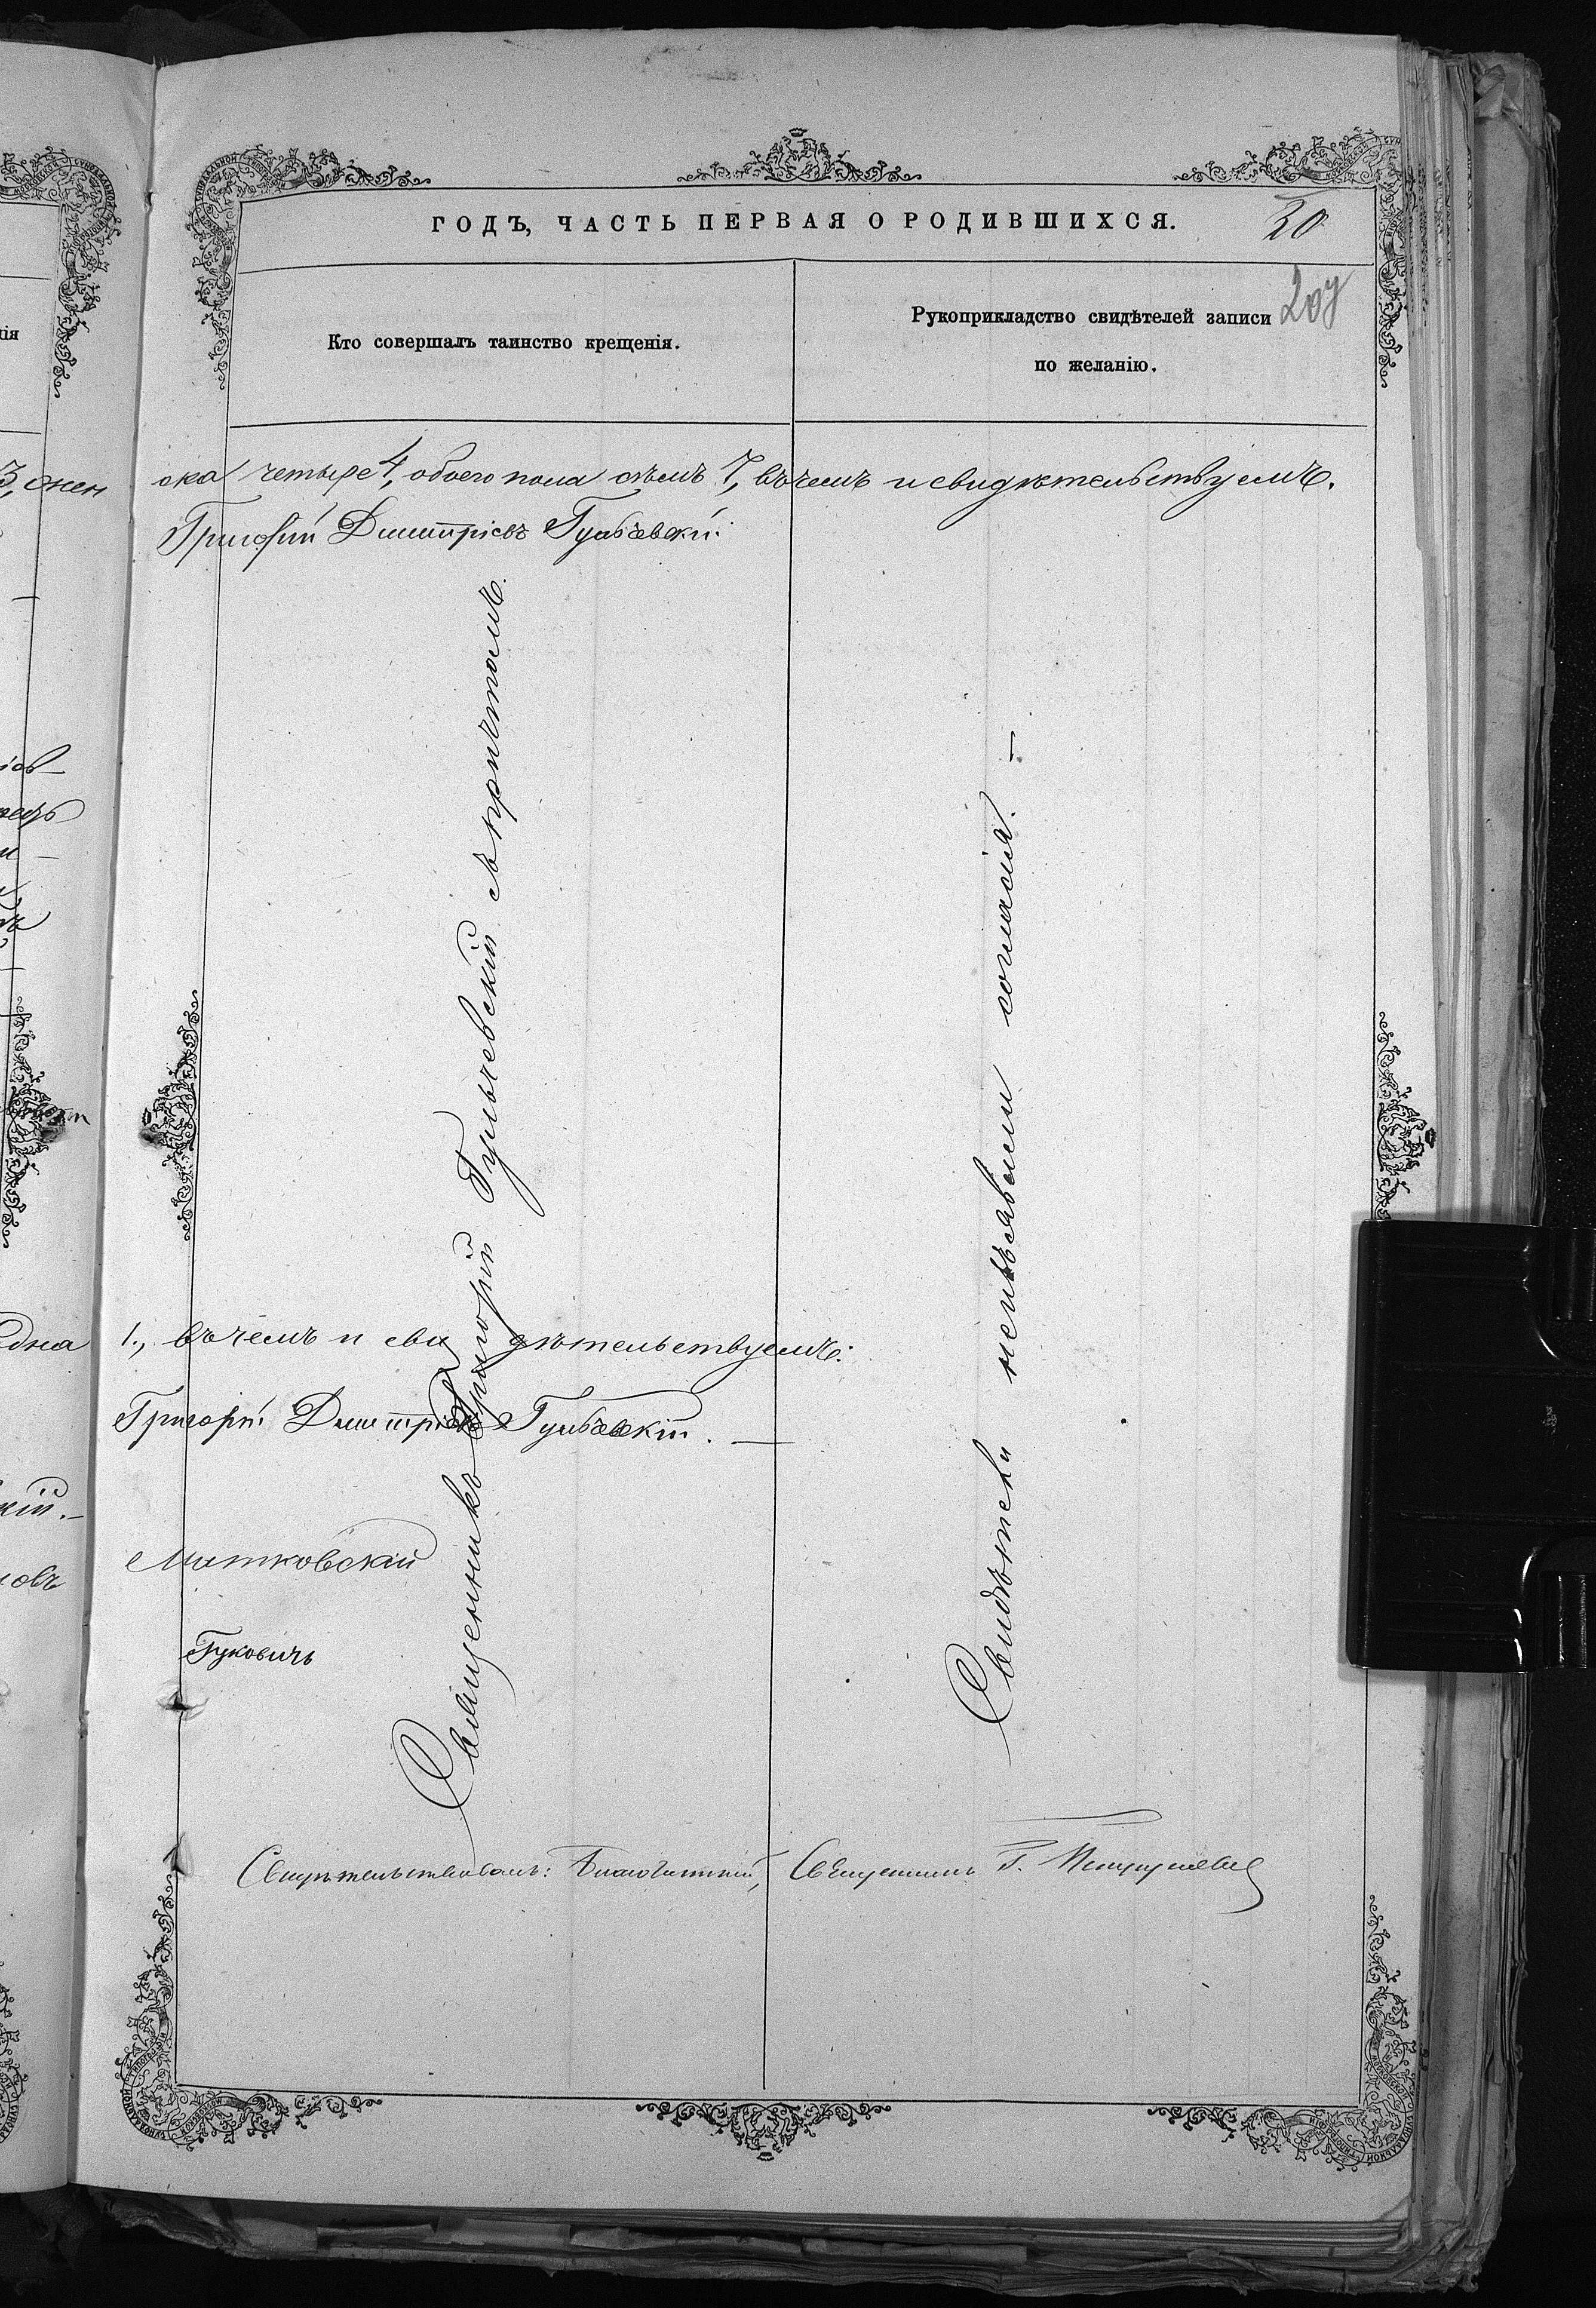 ГОДЪ, ЧАСТЬ ПЕРВАЯ О РОДИВШИХСЯ.
30
207
Кто совершалъ таинство крещенія.
Рукоприкладство свидѣтелей записи
по желанію.
3, жен
ска четыре 4, обоего пола семь 7, въ чемъ и свидѣтельствуемъ.
Григорій Димитріевъ Гульчевскій
Священникъ Григорій Гульчевскій съ причтомъ.
Свидѣтели неизъявили согласія. —
одна 1., въ чемъ и свидѣтельствуемъ:
Григорій Димитріевъ Гульчевскій. —
Митковскій
Гуковичъ
Свидѣтельствовалъ: Благочинный, Священникъ Г.